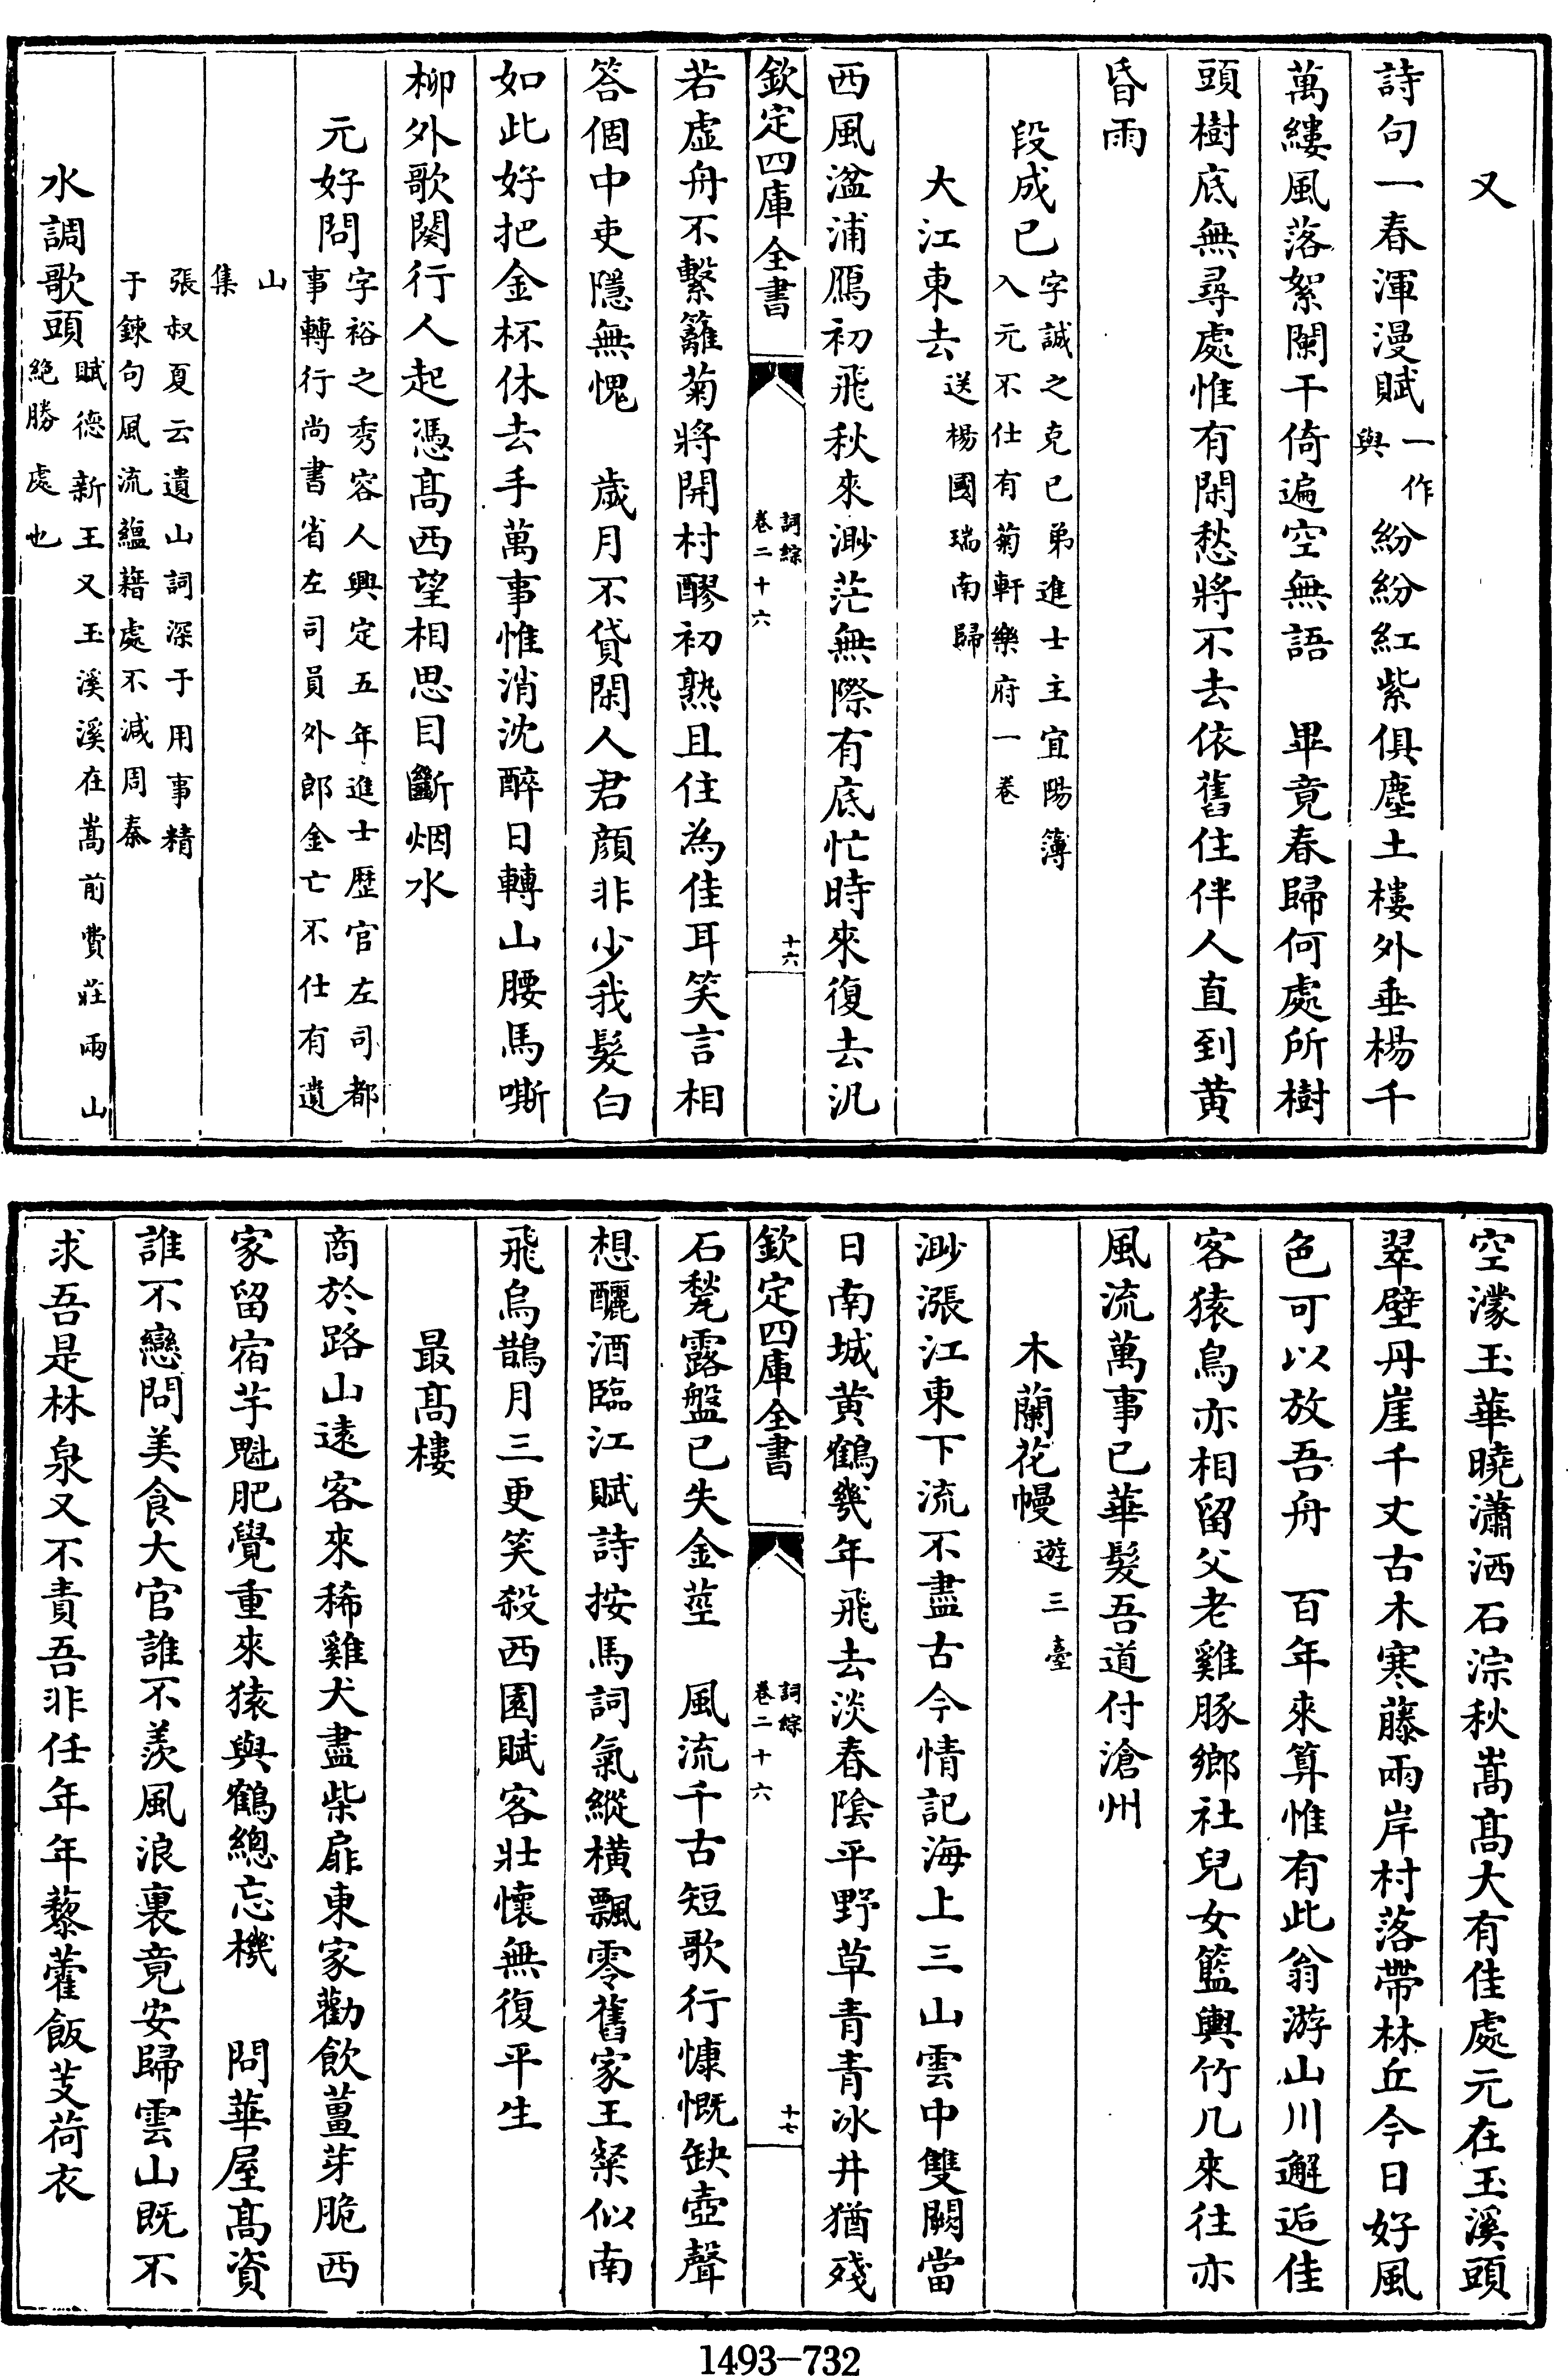 又
詩句一春渾漫賦一作與紛紛紅紫俱塵土樓外垂楊千
萬縷風落絮闌干倚遍空無語　畢竟春歸何處所樹
頭樹底無尋處惟有閑愁將不去依舊住伴人直到黄
昏雨
段成已字誠之克已弟進士主宜陽簿入元不仕有菊軒樂府一卷
大江東去送楊國瑞南歸
西風湓浦鴈初飛秋來渺茫無際有底忙時來復去汎
欽定四庫全書
詞綜
卷二十六
十六
若虚舟不繫籬菊將開村醪初熟且住為佳耳笑言相
答個中吏隱無愧　歲月不貸閑人君顔非少我髮白
如此好把金杯休去手萬事惟消沈醉日轉山腰馬嘶
柳外歌闋行人起憑髙西望相思目斷烟水
元好問字裕之秀容人興定五年進士歷官左司都事轉行尚書省左司員外郎金亡不仕有遺
山集
張叔夏云遺山詞深于用事精于鍊句風流藴藉處不減周秦
水調歌頭賦德新王又玉溪溪在嵩前費莊兩山絶勝處也
空濛玉華曉瀟洒石淙秋嵩髙大有佳處元在玉溪頭
翠壁丹崖千丈古木寒藤兩岸村落帶林丘今日好風
色可以放吾舟　百年來算惟有此翁游山川邂逅佳
客猿鳥亦相留父老雞豚鄉社兒女籃輿竹几來往亦
風流萬事已華髮吾道付滄州
木蘭花幔遊三臺
渺漲江東下流不盡古今情記海上三山雲中雙闕當
日南城黄鶴幾年飛去淡春陰平野草青青冰井猶殘
欽定四庫全書
詞綜
卷二十六
十七
石甃露盤已失金莖　風流千古短歌行慷慨缺壺聲
想釃酒臨江賦詩按馬詞氣縱橫飄零舊家王粲似南
飛烏鵲月三更笑殺西園賦客壯懷無復平生
最髙樓
商於路山遠客來稀雞犬盡柴扉東家勸飲薑芽脆西
家留宿芋魁肥覺重來猿與鶴總忘機　問華屋髙資
誰不戀問美食大官誰不羨風浪裏竟安歸雲山既不
求吾是林泉又不責吾非任年年藜藿飯芰荷衣
1493—732